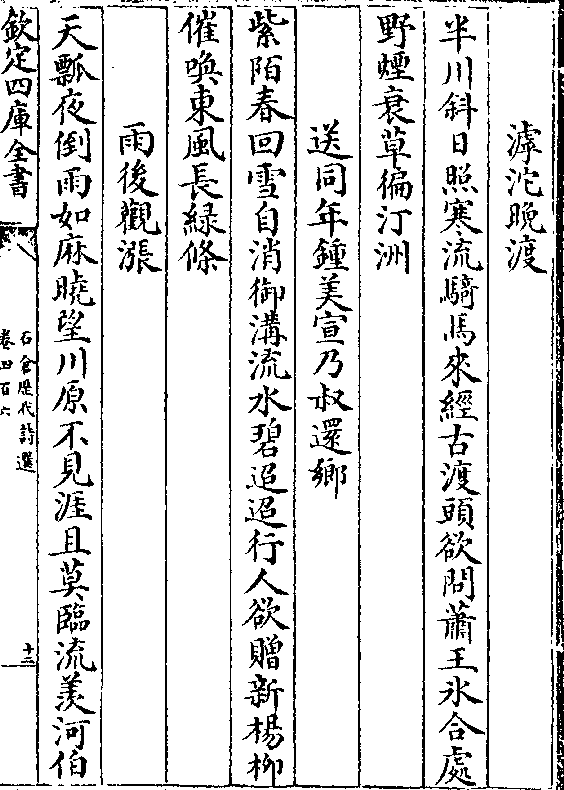 滹沱晚渡
半川斜日照寒流騎馬來經古渡頭欲問蕭王氷合處
野煙衰草徧汀洲
送同年鍾美宣乃叔還鄉
紫陌春回雪自消御溝流水碧迢迢行人欲贈新楊柳
催喚東風長緑條
雨後觀漲
天瓢夜倒雨如麻曉望川原不見涯且莫臨流羡河伯
欽定四庫全書
石倉歷代詩選
卷四百六
十三